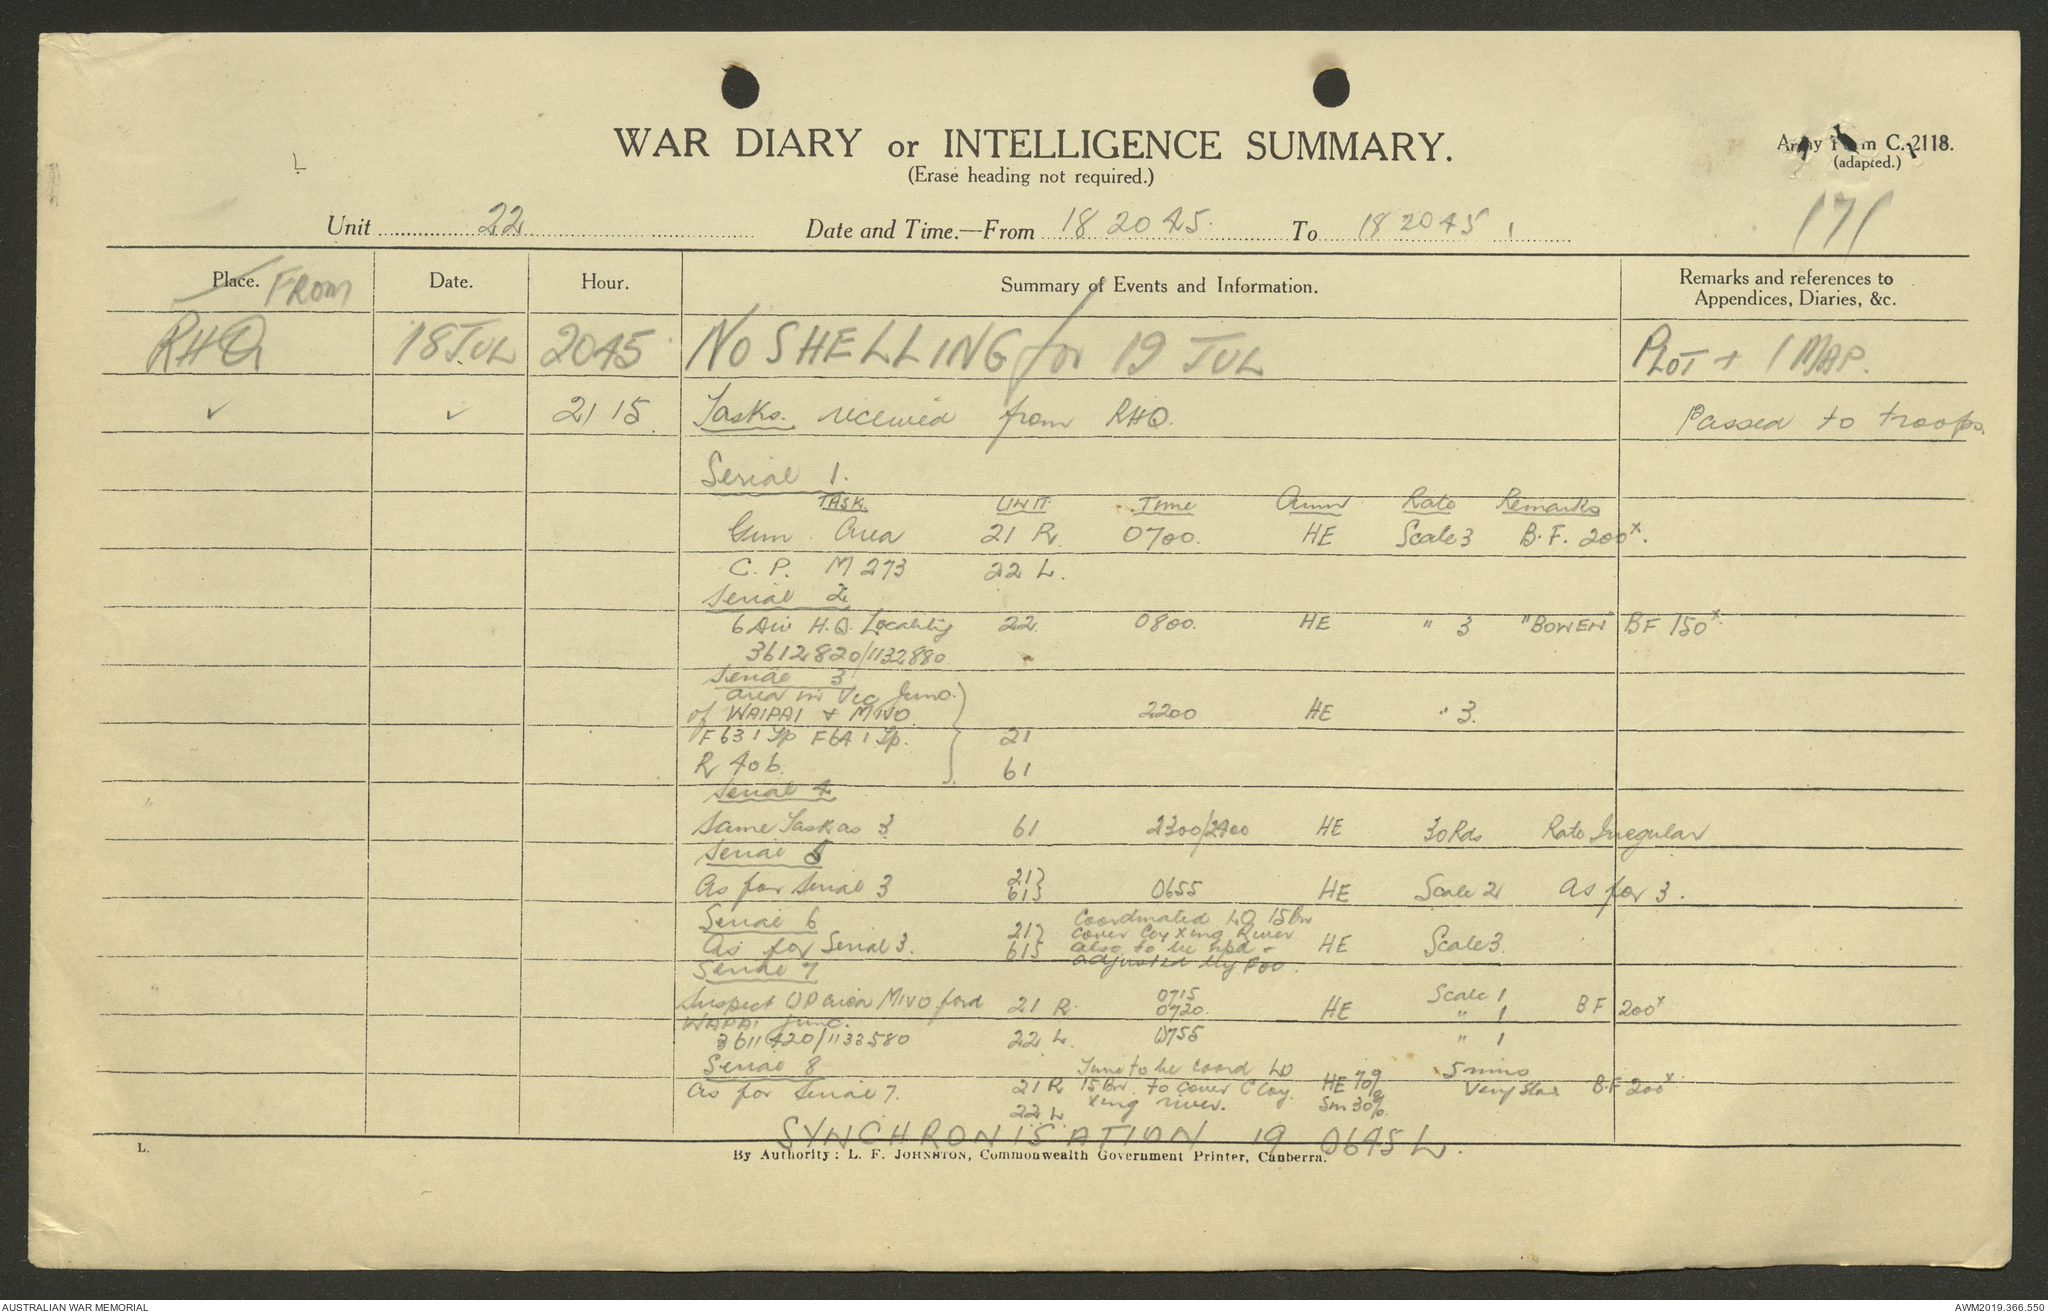 WAR DIARY or INTELLIGENCE SUMMARY.
(Erase heading not required.)
Army Form C. 2118.
(adapted.)
171
Unit 22 Date and Time.—From 18 2045. To 18 2045
Place. FROM Date. Hour. Summary of Events and Information. Remarks and references to Appendices, Diaries, &c.
RHQ 18 JUL 2045 NO SHELLING for 19 JUL PLOT + 1 MAP.
✓ ✓ 2115. Tasks. received from RHQ. Passed to troops.
Serial 1.
TASK. UNIT Time Amm Rate Remarks
Gun Area 21 R. 0700. HE Scale 3 B.F. 200x.
C.P. M 273 22 L.
Serial 2
6 Div H.Q. Locality 22. 0800. HE " 3 "BOWEN" BF 150x.
3612820/1132880
Serial 3
area in Vic Junc.
of WAIPAI + MIVO. 2200 HE " 3.
F631 Tp F641 Tp. 21
R 406. 61
Serial 4
Same Task as 3 61 2300/2400 HE 30 Rds Rate Irregular
Serial 5
As for Serial 3 21} 61} 0655 HE Scale 2 As for 3.
Serial 6 Coordinated LO 15 Bn
As for Serial 3. 21} 61} cover Coy Xing River HE Scale 3.
also to be rptd -
adjusted by Foo.
Serial 7
Suspect OP area MIVO ford 21 R. 0715 HE Scale 1 BF 200x
WAPAI Junc. 0720. " 1
3611420/1133580 22 L. 0755 " 1
Serial 8 Time to be coord LO 5 mins
As for Serial 7. 21 R 15 Bn. to cover C Coy. HE 70% Very Slow B.F 200x
22 L Xing river. Sm 30%.
SYNCHRONISATION 19 0645 L.
L.
By Authority: L. F. JOHNSTON, Commonwealth Government Printer, Canberra.
AUSTRALIAN WAR MEMORIAL AWM2019.366.550